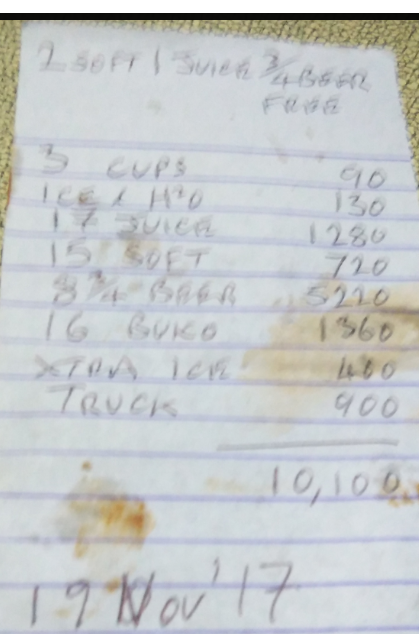 2 SOFT 1 JUICE 3/4 BEER
FREE
3 CUPS 90
ICE & H²O 130
17 JUICE 1280
15 SOFT 720
8 3/4 BEER 5220
16 BUKO 1360
XTRA ICE 400
TRUCK 900
10,100
19 Nov '17